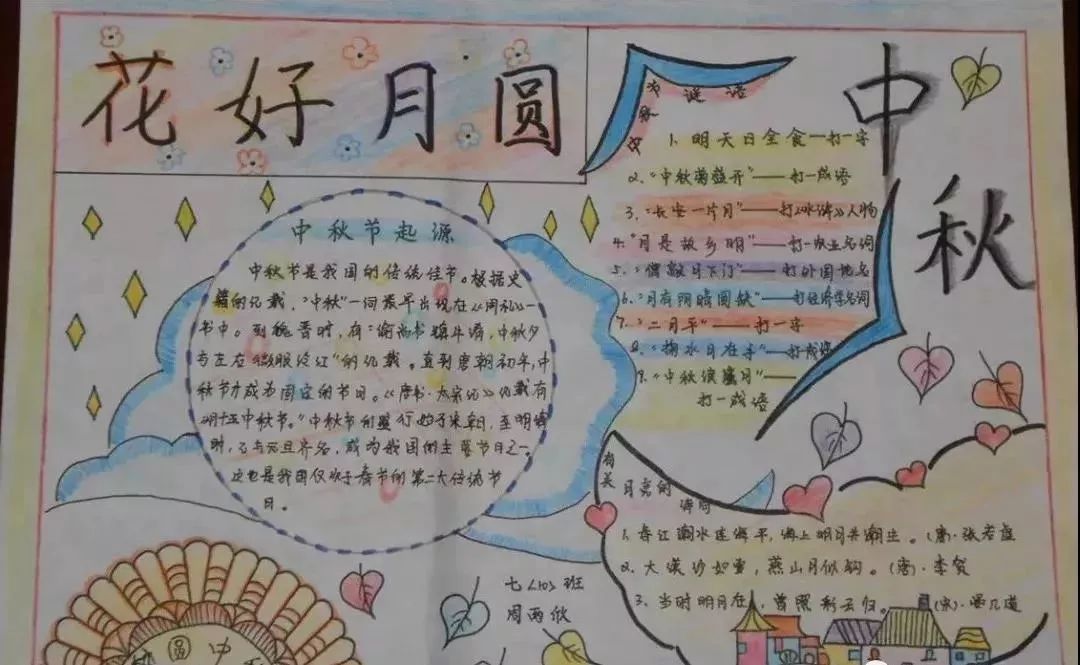 花好月圆
中秋
中秋节起源
中秋节是我国的传统佳节。根据史
籍的记载，“中秋”一词最早出现在《周礼》一
书中。到魏晋时，有“谕尚书镇牛渚，中秋夕
与左右微服泛江”的记载。直到唐朝初年，中
秋节才成为固定的节日。《唐书·太宗记》记载有
“八月十五中秋节。”中秋节的盛行始于宋朝，至明清
时，已与元旦齐名，成为我国的主要节日之一。
这也是我国仅次于春节的第二大传统节
日。
谜语
1、明天日全食—打一字
2、“中秋菊盛开”——打一成语
3、“长安一片月”——打《水浒》人物
4、“月是故乡明”——打一农业名词
5、“僧敲月下门”——打外国地名
6、“月有阴晴圆缺”——打经济学名词
7、“二月平”——打一字
8、“掬水月在手”——打成语
9、“中秋月”——
打一成语
有关
月亮的
诗句
1、春江潮水连海平，海上明月共潮生。（唐）·张若虚
2、大漠沙如雪，燕山月似钩。（唐）·李贺
3、当时明月在，曾照彩云归。（宋）·晏几道
七<10>班
周雨欣
圆 中